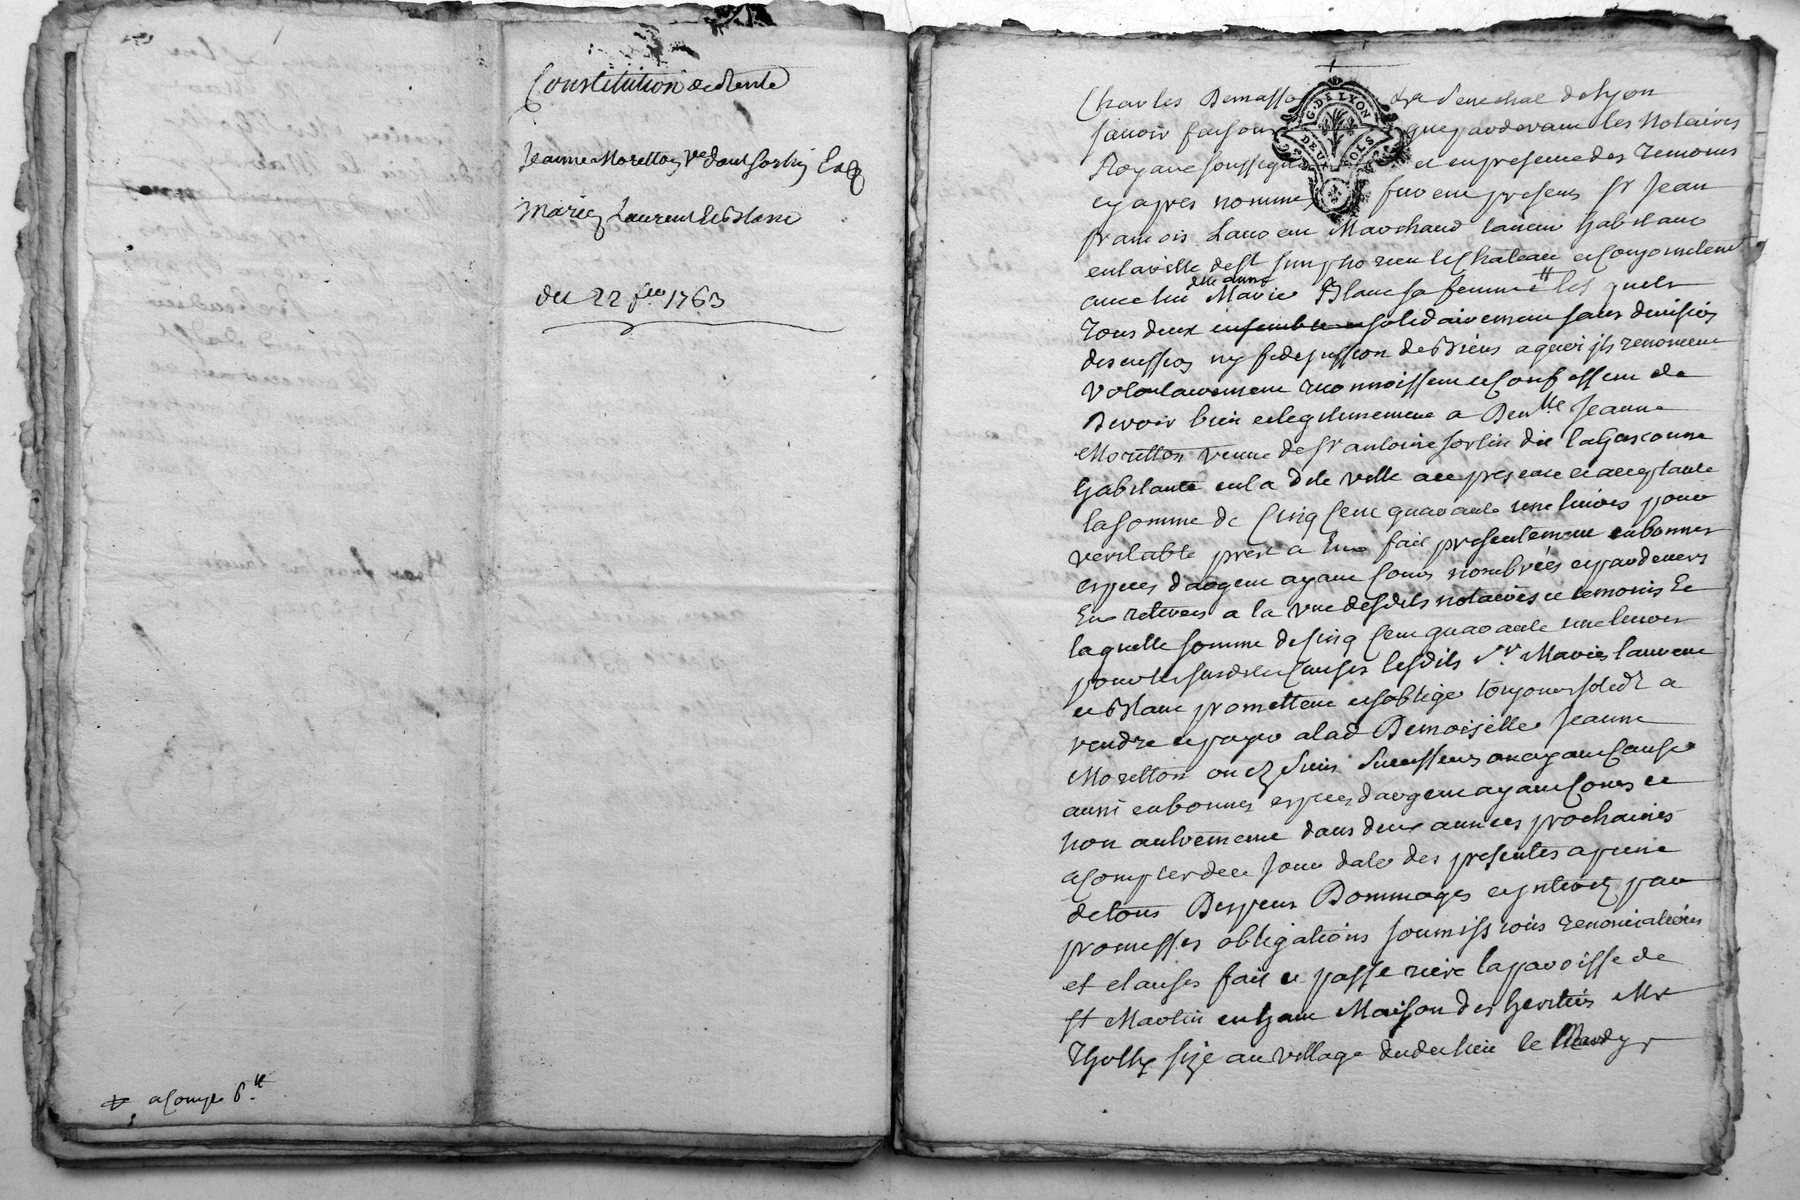 Constitution de Rente
Jeanne Moretton Ve dant Sorlin Et
Mariez Laurent et Blanc
du 22 fer 1763
acompte 6.tt
G. DE LYON
DEUX SOLS
Charles Demasso Senechal de Lyon
scavoir faisons que pardevant les Notaires
Royaux soussignes et en presence des temoins
cy apres nommes furent presens sr Jean
francois Laurent Marchand habitant
en la ville de st simphorien le chateau et conjointement
avec lui dlle anne Marie Blanc sa femme les quels
tous deux ensemble et solidairement sans division
discussion ny fidejussion de Biens a quoi ils renoncent
volontairement reconnoissent et Confessent de
Devoir bien et legitimement a Demlle Jeanne
Moretton veuve de sr antoine sorlin dit la Gasconne
habitante en la dite ville acy presente et acceptante
la somme de Cinq Cent quarante une livres pour
veritable prest a Eux fait presentement en bonnes
especes d'argent ayant Cours nombrées et par devers
Eux retirees a la vue desdits notaires et temoins Et
laquelle somme de Cinq Cent quarante une livres
pour les susdites Causes lesdits srs Mariés laurent
et Blanc promettent et s'oblige toujours solidt a
rendre et payer a lad Demoiselle Jeanne
Moretton ou es siens successeurs ou ayant Cause
aussi en bonnes especes d'argent ayant Cours et
non autrement dans deux annees prochaines
a Compter de ce Jour date des presentes a peine
de tous Depens Dommages et interets par
promesses obligations soumissions renonciations
et clauses fait et passé riere la paroisse de
st Martin en haut Maison des heritiers Mr
Tholly size au village dudit lieu le Mardy